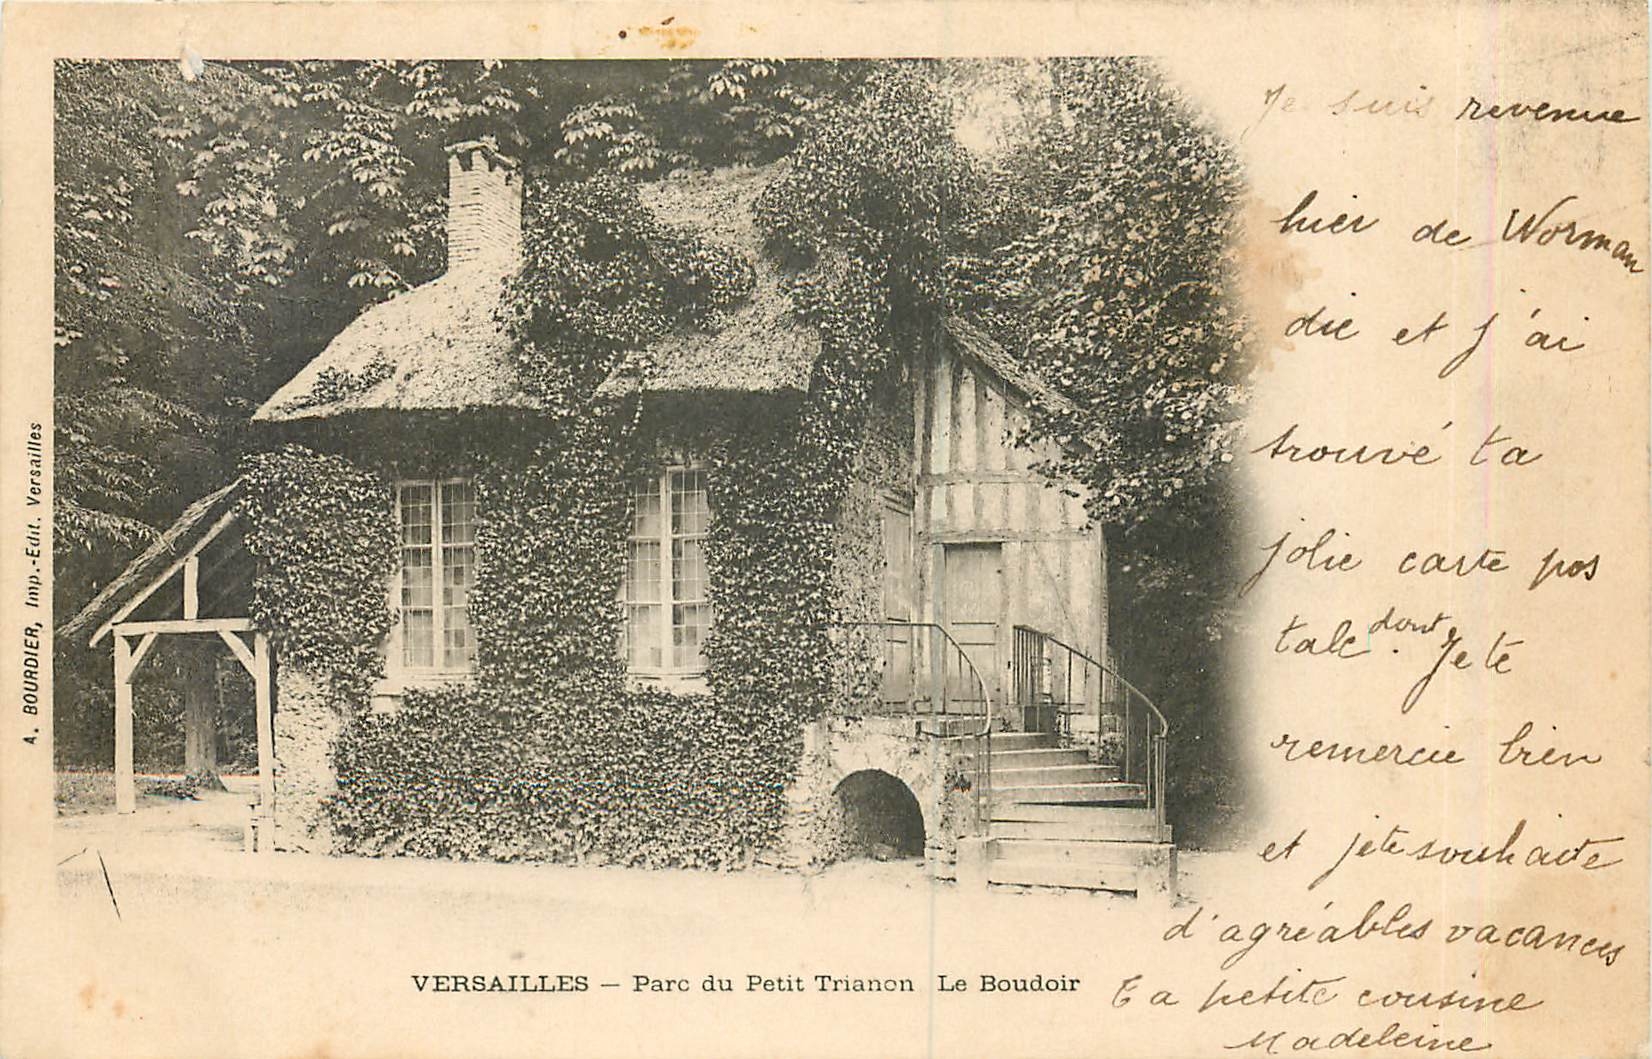 Je suis revenue
hier de Norman
die et j'ai
trouvé ta
jolie carte pos
tale. dont Je te
remercie bien
et je te souhaite
d'agréables vacances
Ta petite cousine
Madeleine
A. BOURDIER, Imp.-Edit. Versailles
VERSAILLES — Parc du Petit Trianon Le Boudoir